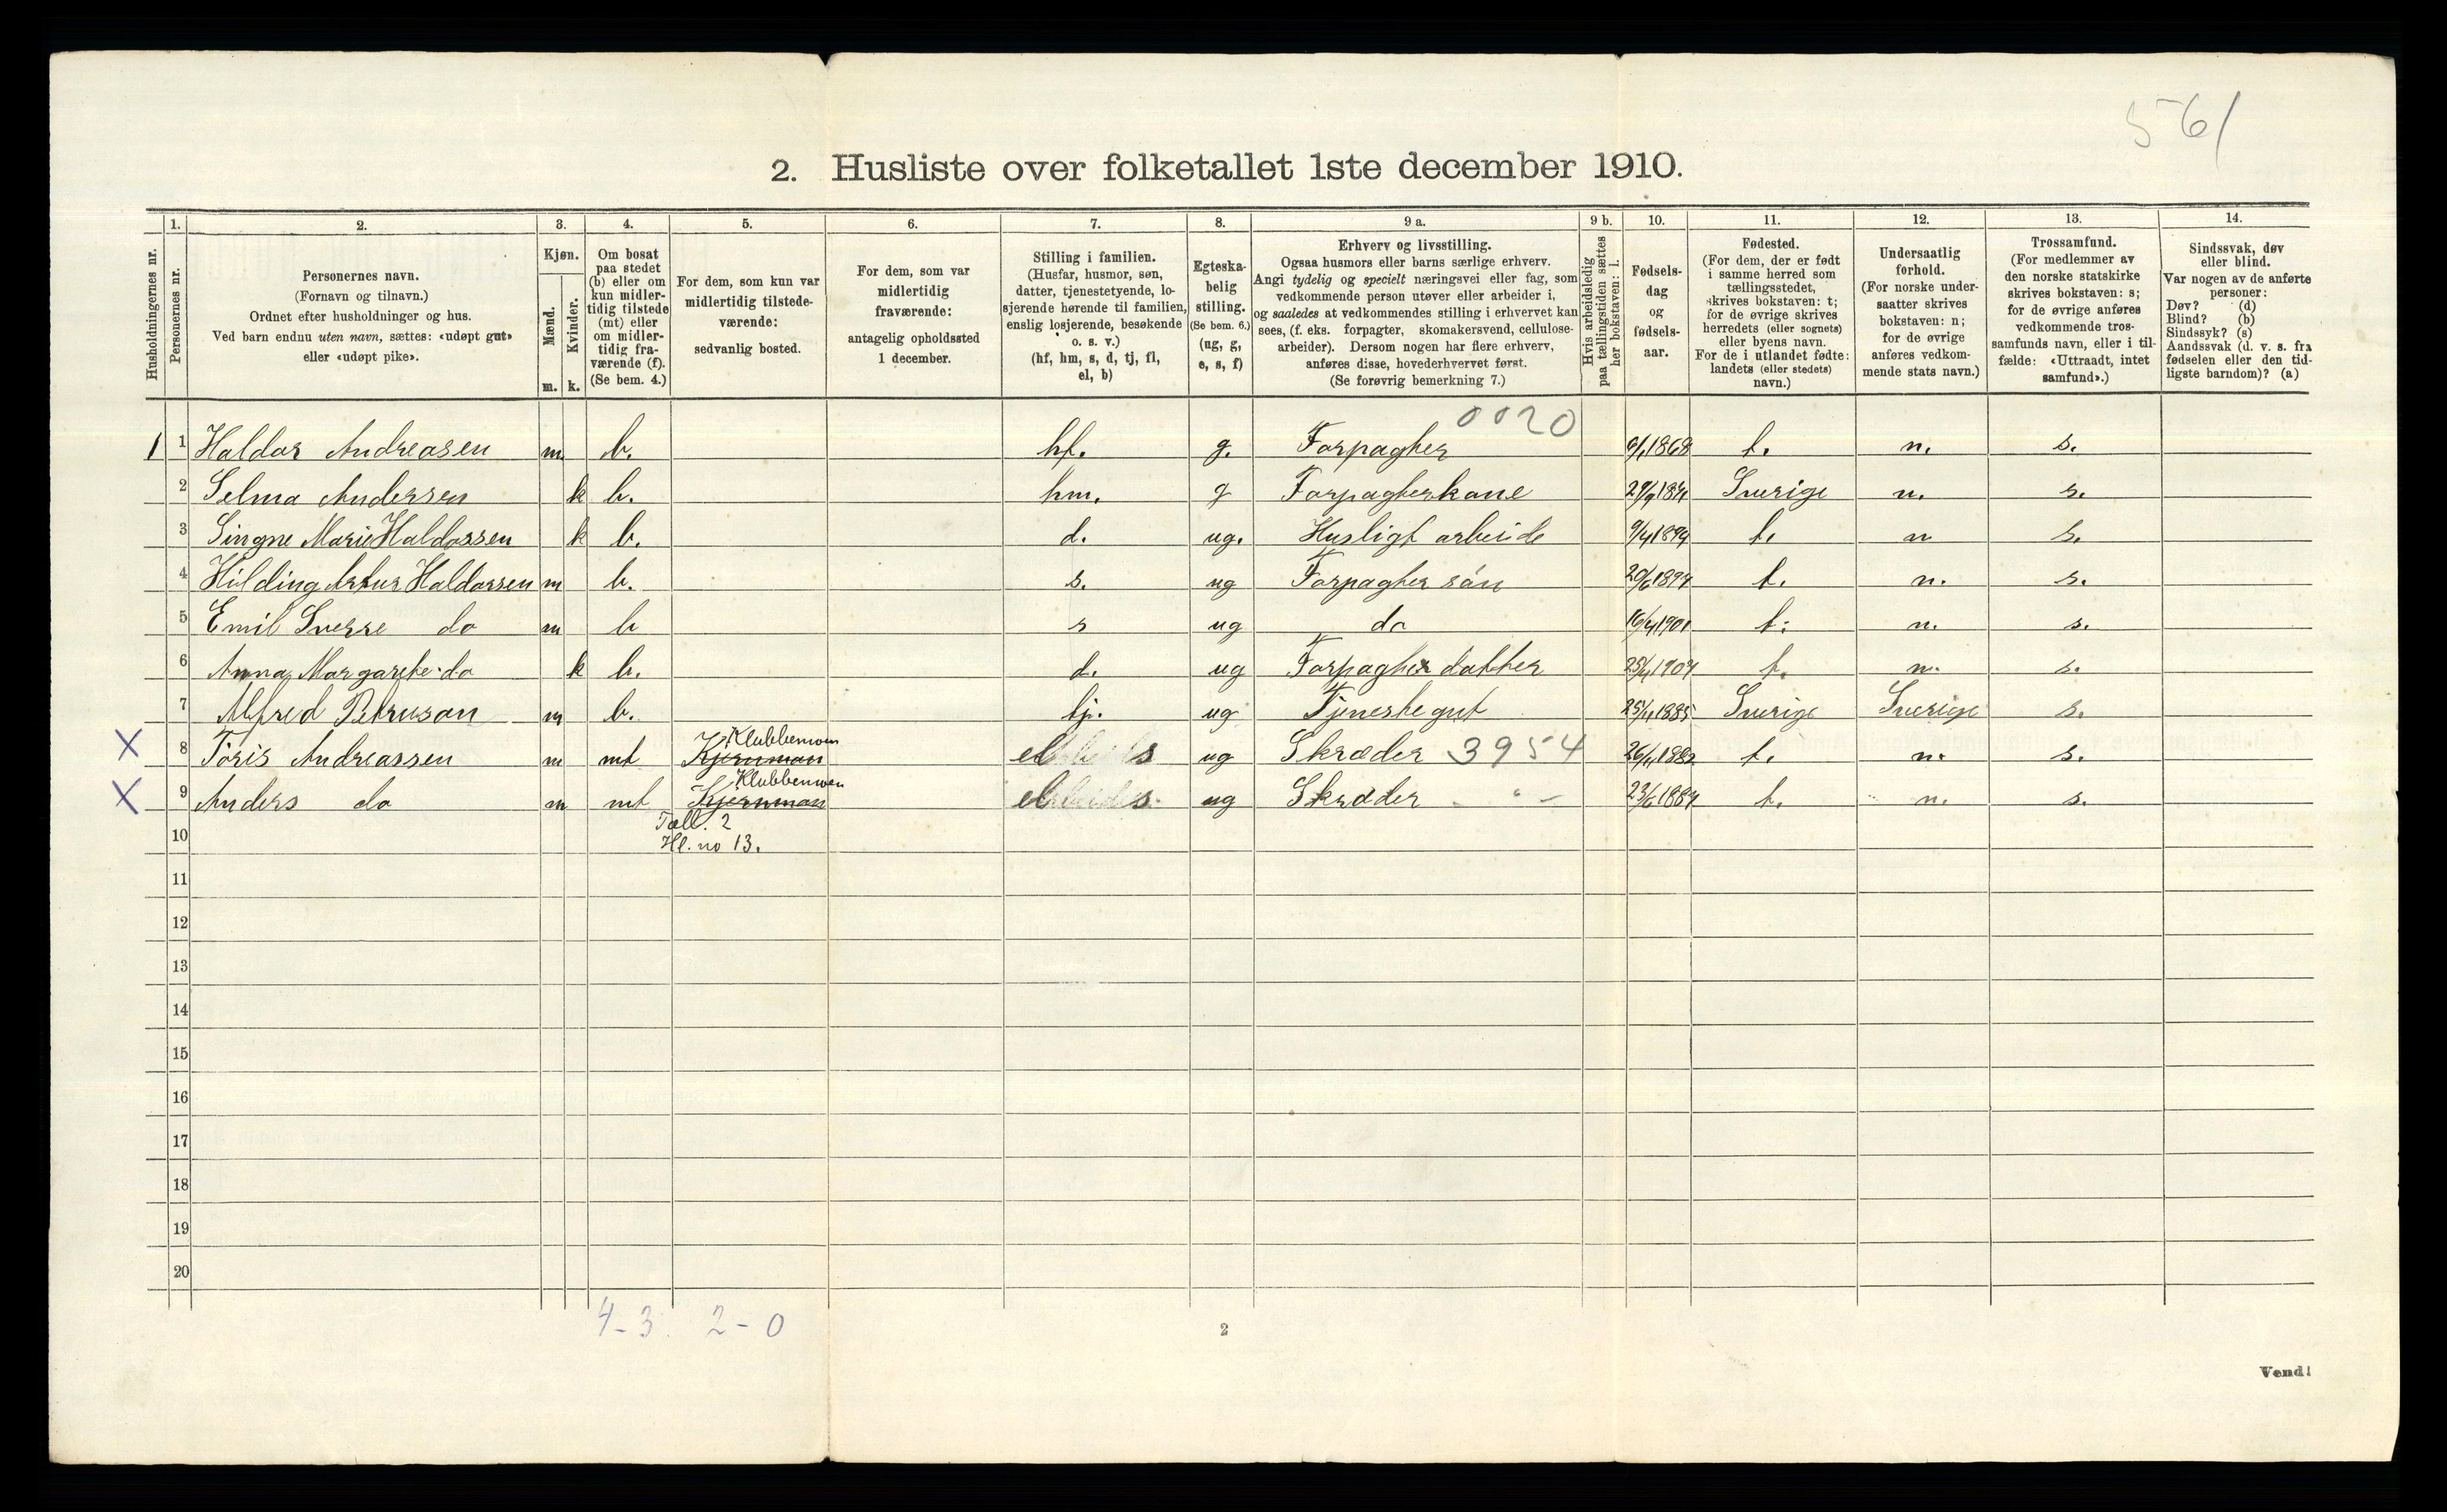 561
2. Husliste over folketallet 1ste december 1910.
Husholdningernes nr.
1. Personernes nr.
2. Personernes navn.
(Fornavn og tilnavn.)
Ordnet efter husholdninger og hus.
Ved barn endnu uten navn, sættes: «udøpt gut»
eller «udøpt pike».
3. Kjøn.
Mænd. m.
Kvinder. k.
4. Om bosat
paa stedet
(b) eller om
kun midler-
tidig tilstede
(mt) eller
om midler-
tidig fra-
værende (f).
(Se bem. 4.)
5. For dem, som kun var
midlertidig tilstede-
værende:
sedvanlig bosted.
6. For dem, som var
midlertidig
fraværende:
antagelig opholdssted
1 december.
7. Stilling i familien.
(Husfar, husmor, søn,
datter, tjenestetyende, lo-
sjerende hørende til familien,
enslig losjerende, besøkende
o. s. v.)
(hf, hm, s, d, tj, fl,
el, b)
8. Egteska-
belig
stilling.
(Se bem. 6.)
(ug, g,
e, s, f)
9 a. Erhverv og livsstilling.
Ogsaa husmors eller barns særlige erhverv.
Angi tydelig og specielt næringsvei eller fag, som
vedkommende person utøver eller arbeider i,
og saaledes at vedkommendes stilling i erhvervet kan
sees, (f. eks. forpagter, skomakersvend, cellulose-
arbeider). Dersom nogen har flere erhverv,
anføres disse, hovederhvervet først.
(Se forøvrig bemerkning 7.)
9 b. Hvis arbeidsledig
paa tællingstiden sættes
her bokstaven: l.
10. Fødsels-
dag
og
fødsels-
aar.
11. Fødested.
(For dem, der er født
i samme herred som
tællingsstedet,
skrives bokstaven: t;
for de øvrige skrives
herredets (eller sognets)
eller byens navn.
For de i utlandet fødte:
landets (eller stedets)
navn.)
12. Undersaatlig
forhold.
(For norske under-
saatter skrives
bokstaven: n;
for de øvrige
anføres vedkom-
mende stats navn.)
13. Trossamfund.
(For medlemmer av
den norske statskirke
skrives bokstaven: s;
for de øvrige anføres
vedkommende tros-
samfunds navn, eller i til-
fælde: «Uttraadt, intet
samfund».)
14. Sindssvak, døv
eller blind.
Var nogen av de anførte
personer:
Døv? (d)
Blind? (b)
Sindssyk? (s)
Aandssvak (d. v. s. fra
fødselen eller den tid-
ligste barndom)? (a)
0020
1 1 Haldor Andreasen m b. hf. g. Forpagter 6/1 1868 t. n. s.
2 Selma Andersen k b. hm. g Forpagterkone Sverige n. s.
3 Singne Marie Haldorsen k b. d. ug. Husligt arbeide 9/4 1894 t. n s.
4 Hilding Artur Haldorsen m b. s. ug Forpagter søn 20/6 1897 t. n. s.
5 Emil Sverre do m b s ug do 16/4 1901 t. n. s.
6 Anna Margarete do k b. d. ug Forpagter datter t. n. s.
7 Alfred Petruson m b. tj. ug Tjenestegut 1885 Sverige Sverige s.
Klubbemoen
X 8 Toris Andreassen m mt Kjernmoen el ug Skræder 3954 1882 t. n. s.
Klubbemoen
X 9 Anders do m mt Kjernmoen el ug Skræder - " - 23/6 1887 t. n. s.
Tæll. 2
10 Hl. no 13.
11
12
13
14
15
16
17
18
19
20
4-3. 2-0
2
Vend!